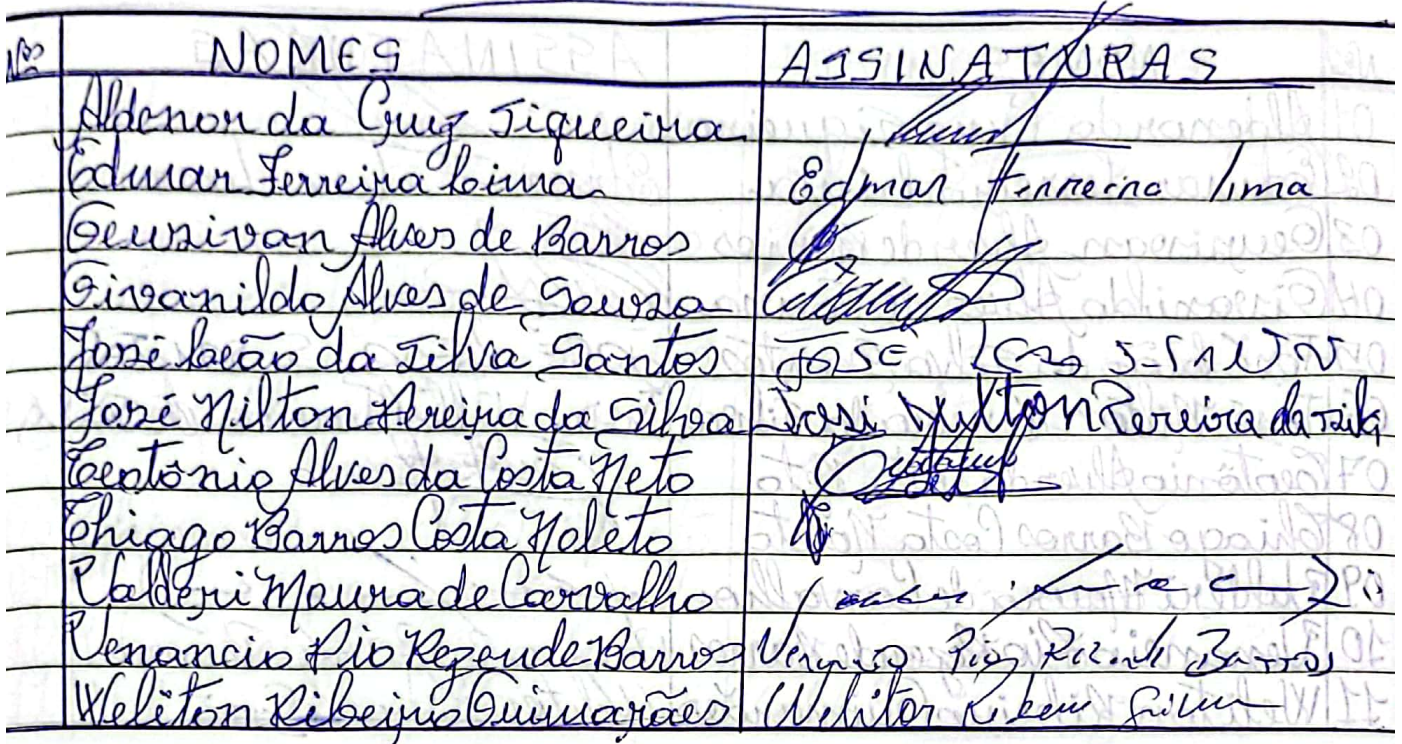 Nº NOMES ASSINATURAS
Aldenor da Cruz Siqueira
Edmar Ferreira Lima Edmar Ferreira lima
Geuzivan Alves de Barros
Givanildo Alves de Souza
José Leão da Silva Santos JOSE
José Nilton Pereira da Silva José Nylton Pereira da Silva
Teotônio Alves da Costa Neto
Thiago Barros Costa Noleto
Valderi Moura de Carvalho
Venancio Pio Rezende Barros Venancio Pio Rezende Barros
Weliton Ribeiro Guimarães Weliton Ribeiro